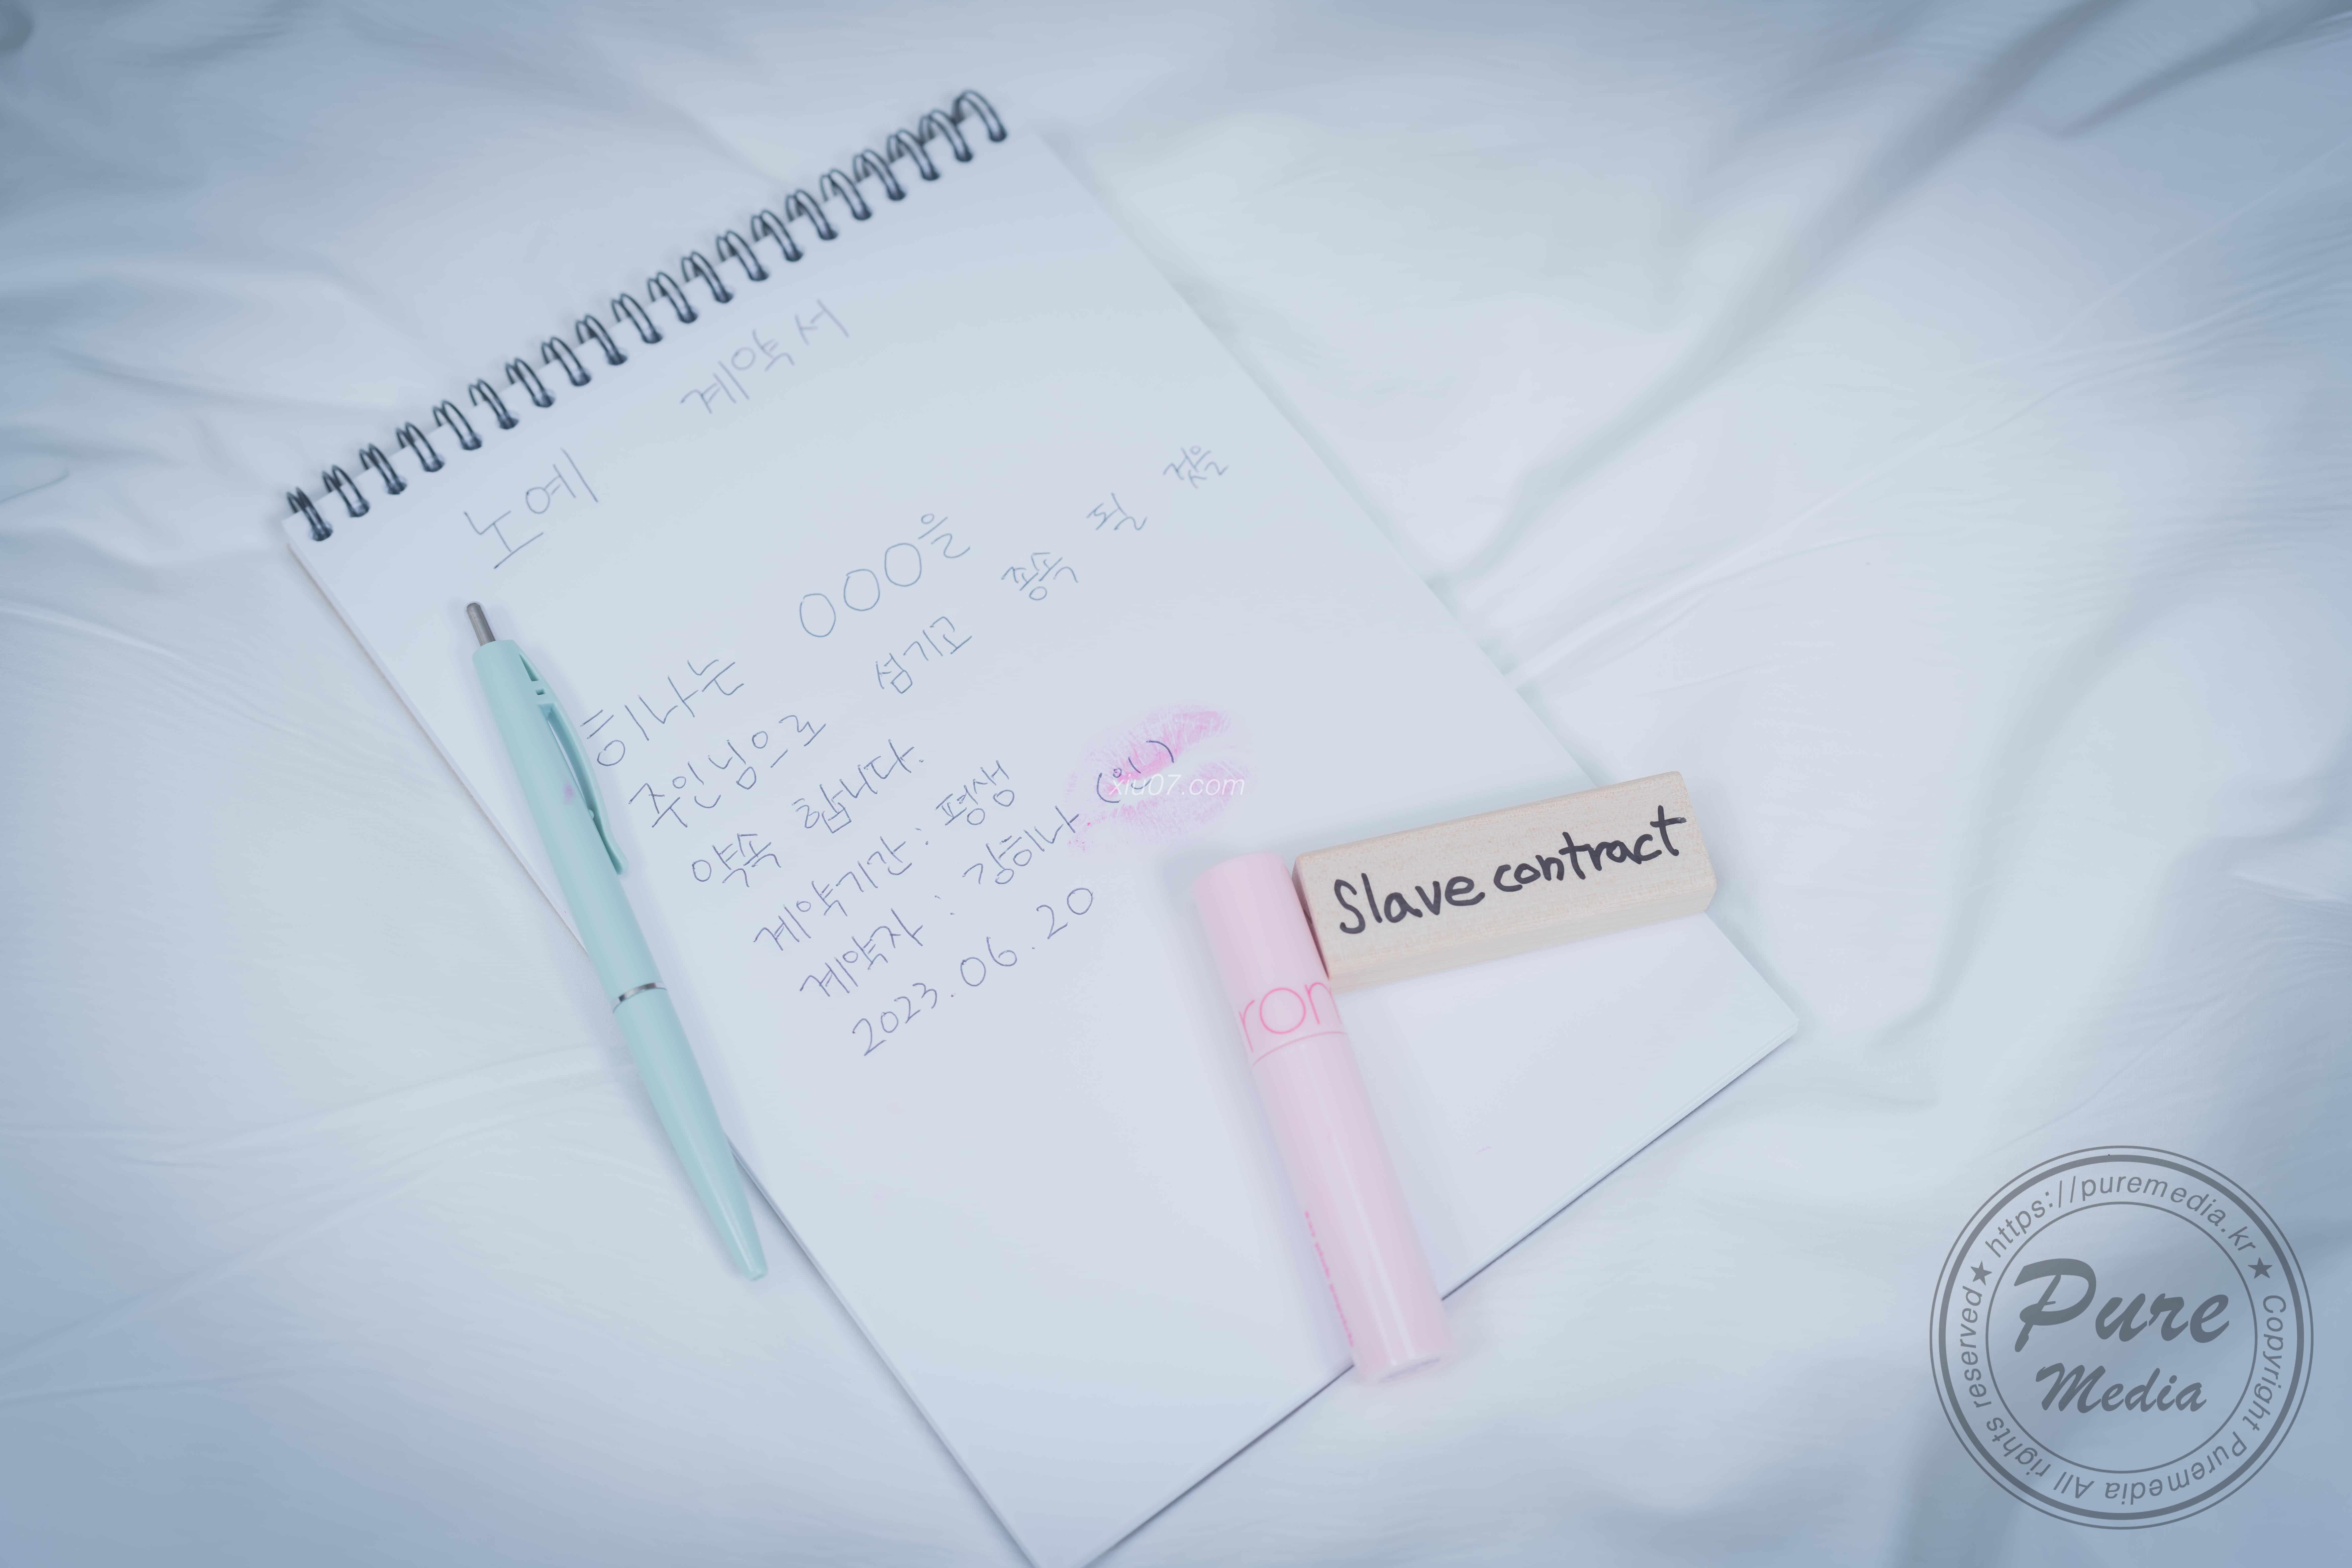 노예 계약서
히나는 OOO을
주인님으로 섬기고 종속 될 것을
약속 합니다.
계약기간 : 평생
계약자 : 강히나 (인)
2023.06.20
xiu07.com
Slave contract
rom
★ https://puremedia.kr ★ Copyright Puremedia All rights reserved
Pure
Media